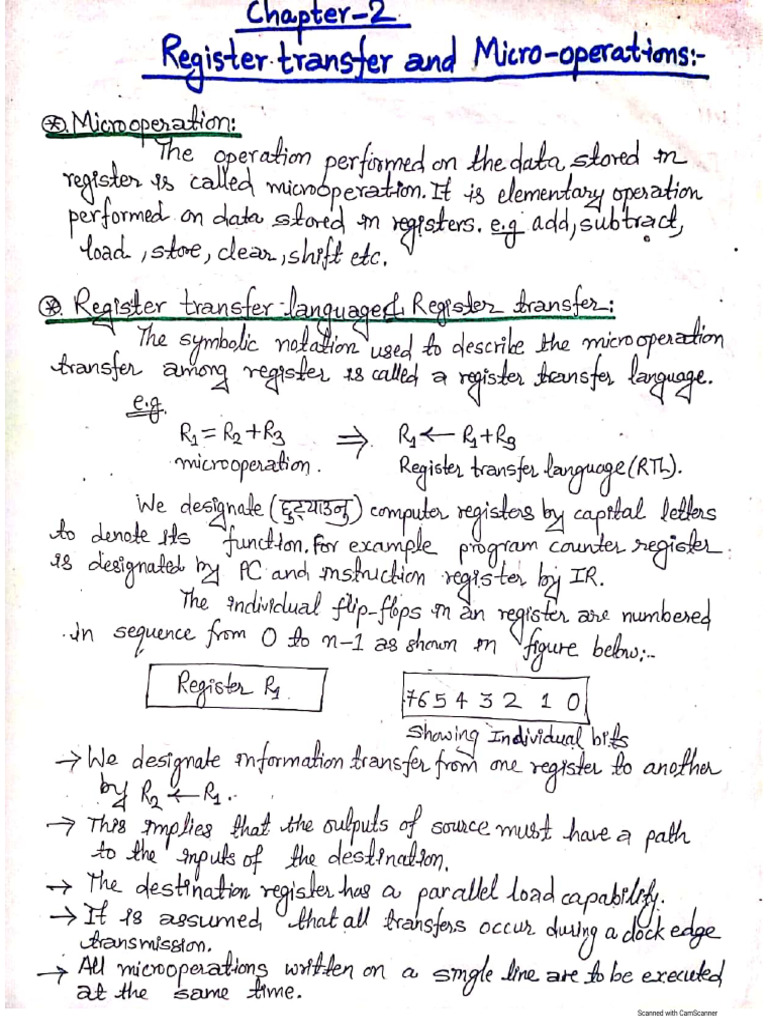 Chapter-2
Register transfer and Micro-operations:-
⊛. Microoperation:
The operation performed on the data stored in
register is called microoperation. It is elementary operation
performed on data stored in registers. e.g add, subtract,
load, store, clear, shift etc.
⊛. Register transfer language & Register transfer:
The symbolic notation used to describe the microoperation
transfer among register is called a register transfer language.
e.g.
R1 = R2 + R3 ⇒ R1 ← R1 + R3
microoperation. Register transfer language (RTL).
We designate (छुट्याउनु) computer registers by capital letters
to denote its function. For example program counter register
is designated by PC and instruction register by IR.
The individual flip-flops in an register are numbered
in sequence from 0 to n-1 as shown in figure below:-
Register R1 7 6 5 4 3 2 1 0
Showing Individual bits
→ We designate information transfer from one register to another
by R2 ← R1.
→ This implies that the outputs of source must have a path
to the inputs of the destination.
→ The destination register has a parallel load capability.
→ It is assumed that all transfers occur during a clock edge
transmission.
→ All microoperations written on a single line are to be executed
at the same time.
Scanned with CamScanner